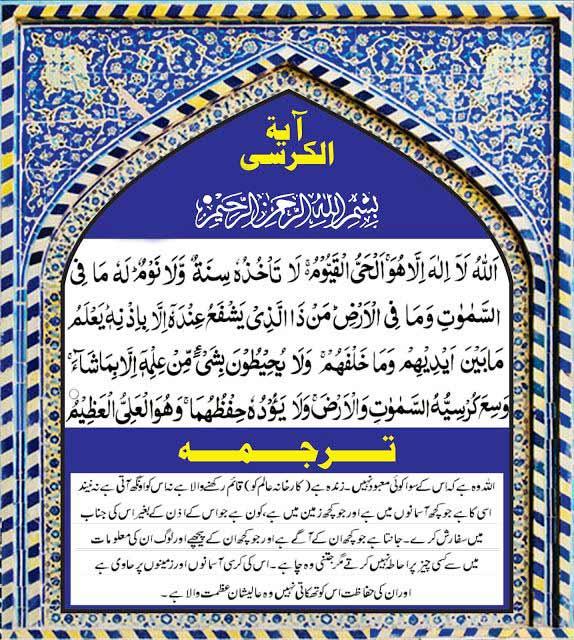 آية
الكرسى
بِسْمِ اللهِ الرَّحْمٰنِ الرَّحِيْمِ
اَللّٰهُ لَاۤ اِلٰهَ اِلَّا هُوَۚ اَلْحَیُّ الْقَیُّوْمُ ۚ لَا تَاْخُذُهٗ سِنَةٌ وَّلَا نَوْمٌ ؕ لَهٗ مَا فِی
السَّمٰوٰتِ وَمَا فِی الْاَرْضِ ؕ مَنْ ذَا الَّذِیْ یَشْفَعُ عِنْدَهٗۤ اِلَّا بِاِذْنِهٖ ؕ یَعْلَمُ
مَا بَیْنَ اَیْدِیْهِمْ وَمَا خَلْفَهُمْ ۚ وَلَا یُحِیْطُوْنَ بِشَیْءٍ مِّنْ عِلْمِهٖۤ اِلَّا بِمَا شَآءَ ۚ
وَسِعَ كُرْسِیُّهُ السَّمٰوٰتِ وَالْاَرْضَ ۚ وَلَا یَـُٔوْدُهٗ حِفْظُهُمَا ۚ وَهُوَ الْعَلِیُّ الْعَظِیْمُ
ترجمہ
اللہ وہ ہے کہ اس کے سوا کوئی معبود نہیں۔ زندہ ہے (کارخانہ عالم کو) قائم رکھنے والا ہے نہ اس کو اونگھ آتی ہے نہ نیند
اسی کا ہے جو کچھ آسمانوں میں ہے اور جو کچھ زمین میں ہے، کون ہے جو اس کے اذن کے بغیر اس کی جناب
میں سفارش کرے۔ جانتا ہے جو کچھ ان کے آگے ہے اور جو کچھ ان کے پیچھے اور لوگ ان کی معلومات
میں سے کسی چیز پر احاطہ نہیں کرتے مگر جتنی وہ چاہے۔ اس کی کرسی آسمانوں اور زمینوں پر حاوی ہے
اور ان کی حفاظت اس کو تھکاتی نہیں وہ عالیشان عظمت والا ہے۔